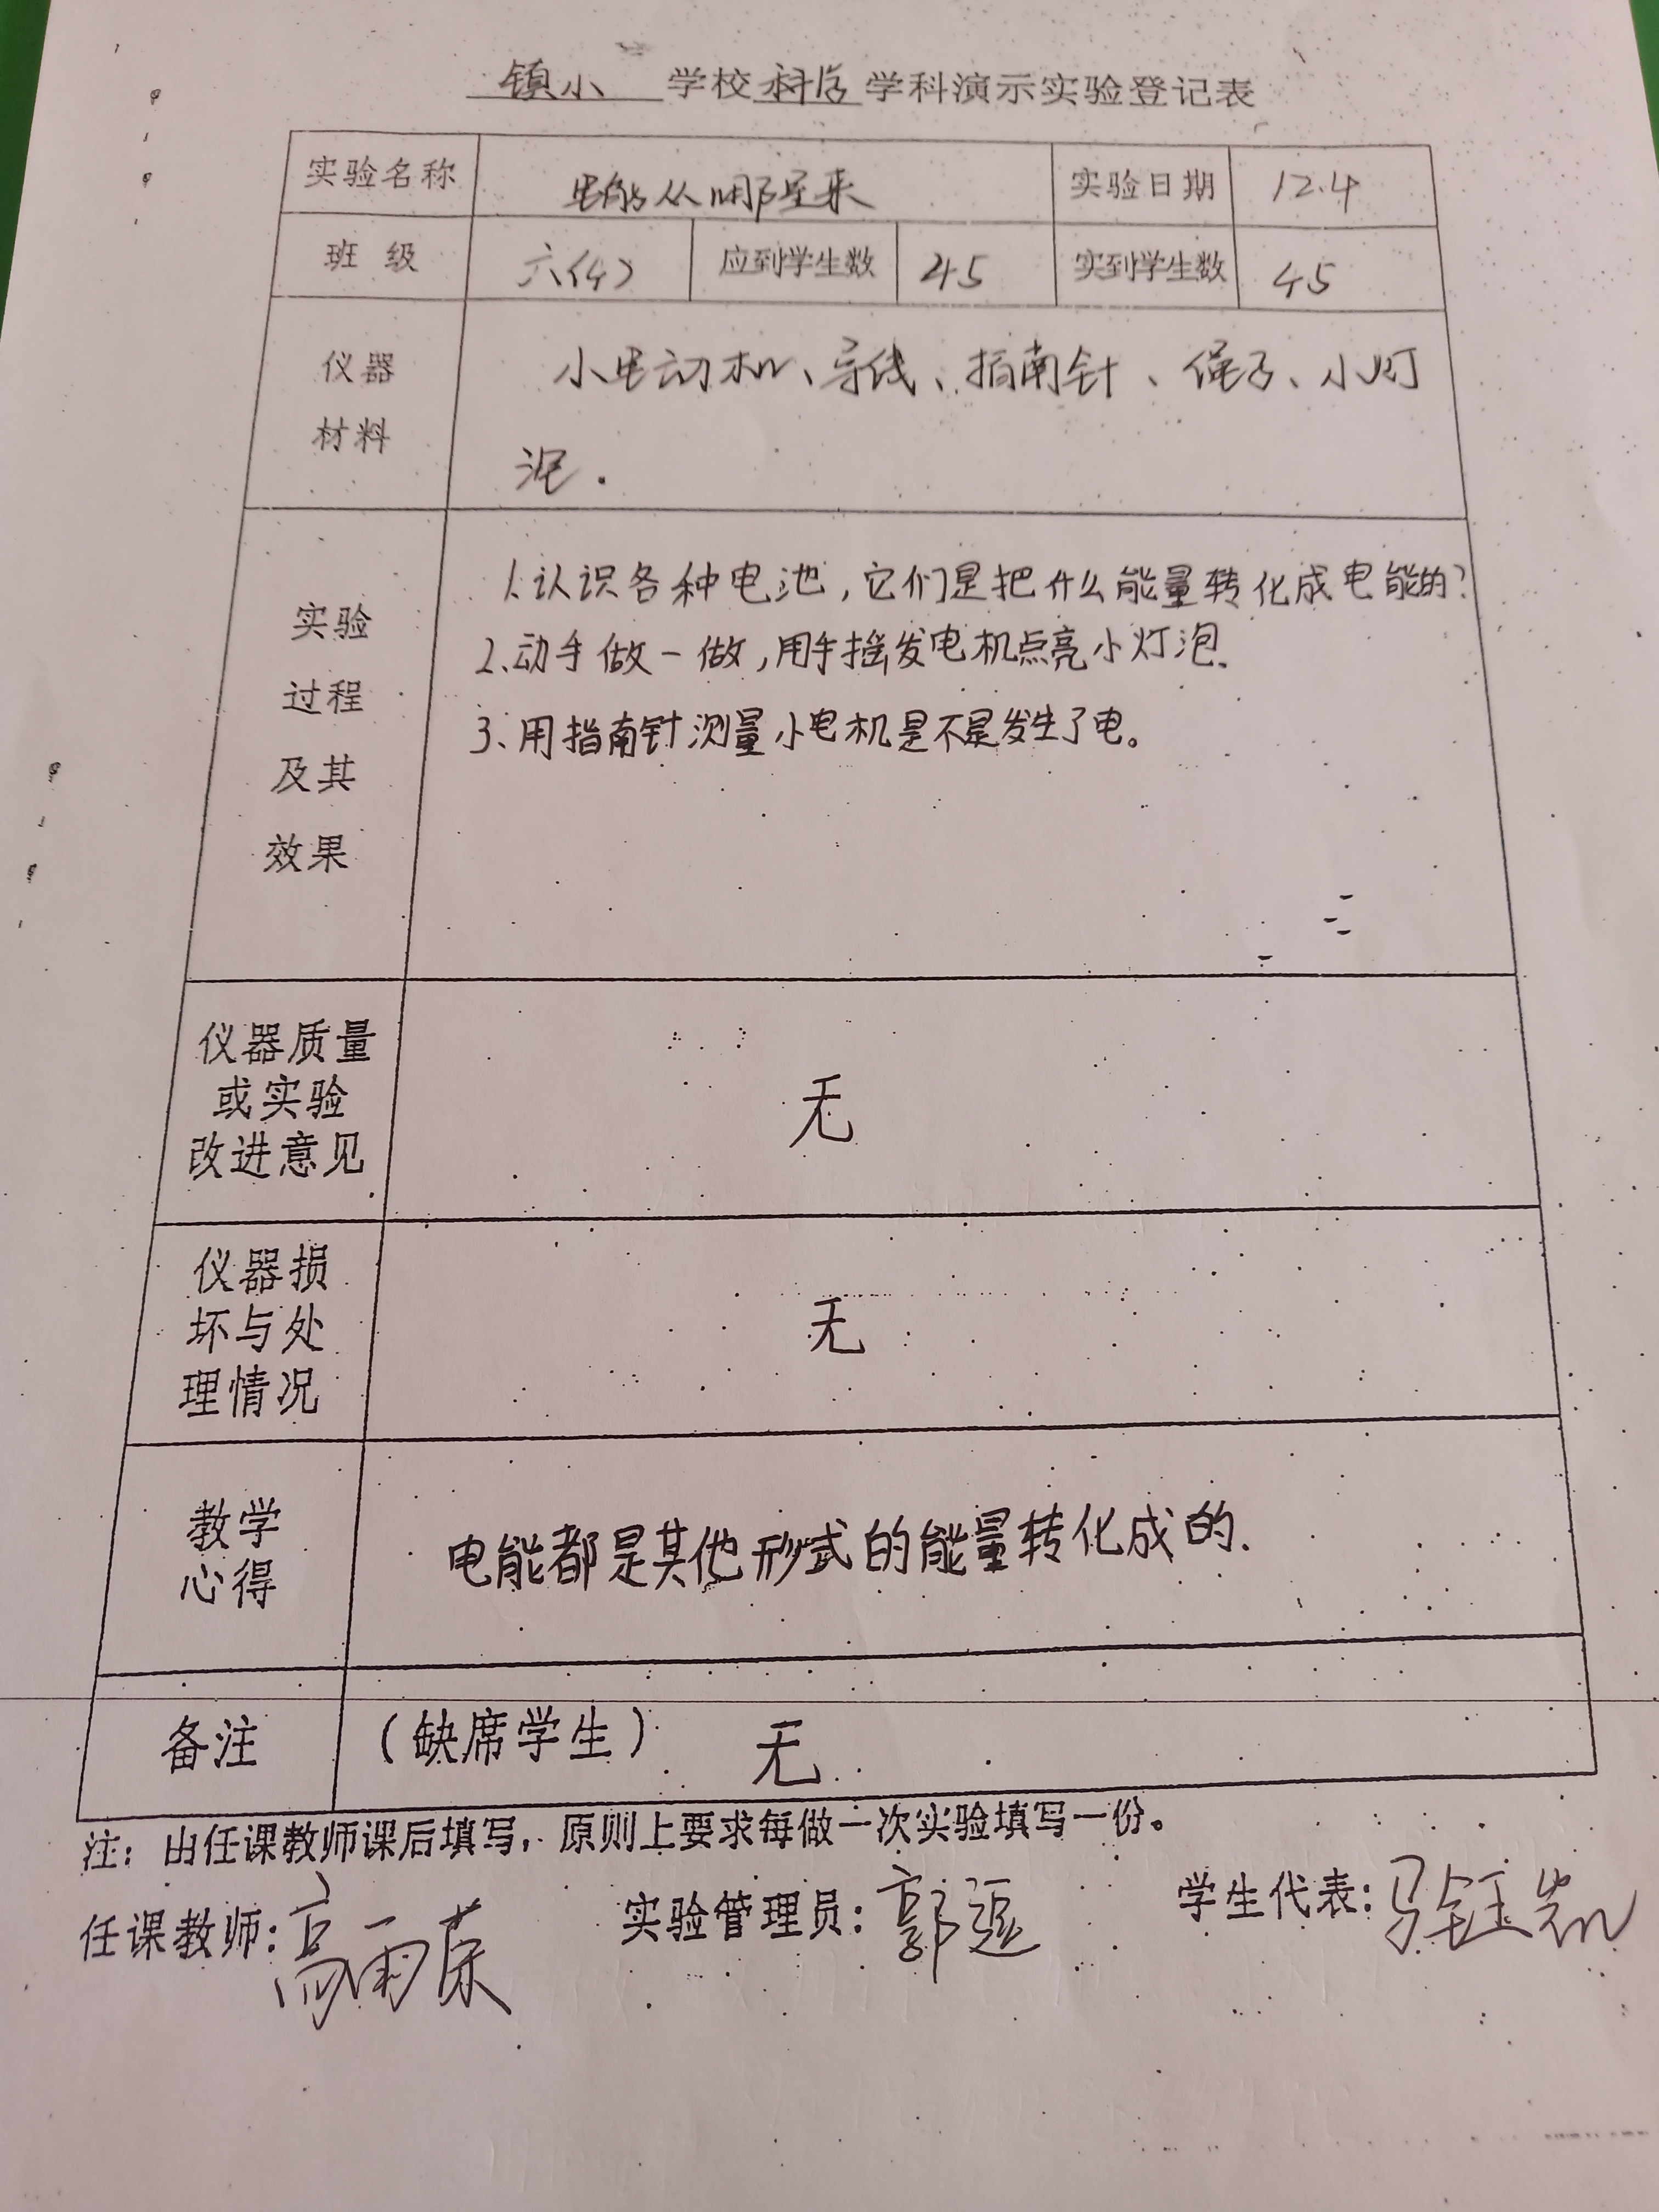 镇小 学校 科学 学科演示实验登记表
实验名称 电能从哪里来 实验日期 12.4
班 级 六(4) 应到学生数 45 实到学生数 45
仪器
材料
小电动机、导线、指南针、绳子、小灯
泡.
实验
过程
及其
效果
1.认识各种电池,它们是把什么能量转化成电能的?
2.动手做一做,用手摇发电机点亮小灯泡.
3、用指南针测量小电机是不是发生了电。
仪器质量
或实验
改进意见
无
仪器损
坏与处
理情况
无
教学
心得
电能都是其他形式的能量转化成的.
备注 (缺席学生) 无
注: 由任课教师课后填写, 原则上要求每做一次实验填写一份。
任课教师: 高雨 实验管理员: 郭 学生代表: 马钰凯